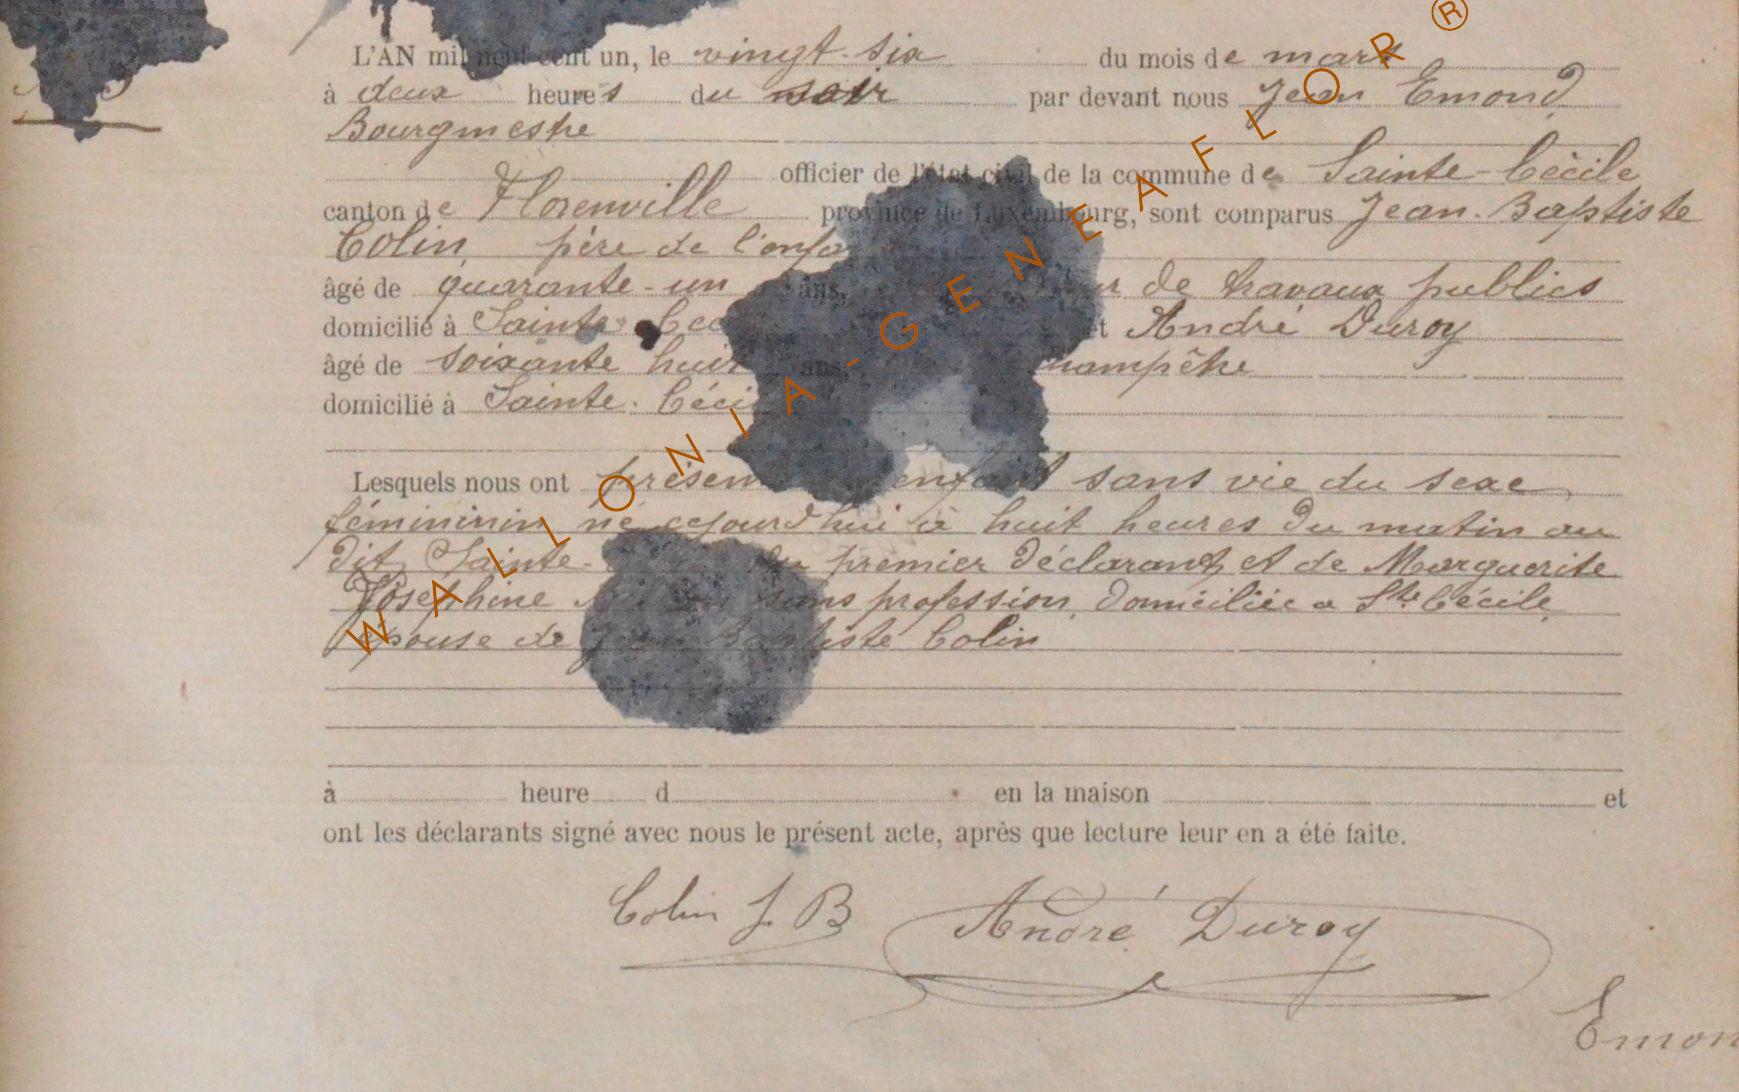 L'AN mil neuf cent un, le vingt-six du mois de mars
à deux heures du soir par devant nous Jean Emond
Bourgmestre
officier de l'état civil de la commune de Sainte-Cécile
canton de Florenville province de Luxembourg, sont comparus Jean-Baptiste
Colin, père de l'enfa
âgé de quarante-un ans, de travaux publics
domicilié à Sainte Cec et André Duroy
âgé de soixante huit ans, hampêtre
domicilié à Sainte-Céci
Lesquels nous ont présen enfant sans vie du sexe
fémininin né cejourd'hui à huit heures du matin au
dit Sainte- premier déclarant et de Marguerite
Joséphine sans profession, domiciliée a Ste Cécile,
épouse de Jean Baptiste Colin
à heure d en la maison et
ont les déclarants signé avec nous le présent acte, après que lecture leur en a été faite.
Colin J B André Duroy
Emon
WALLONIA-GENEAFLOR®